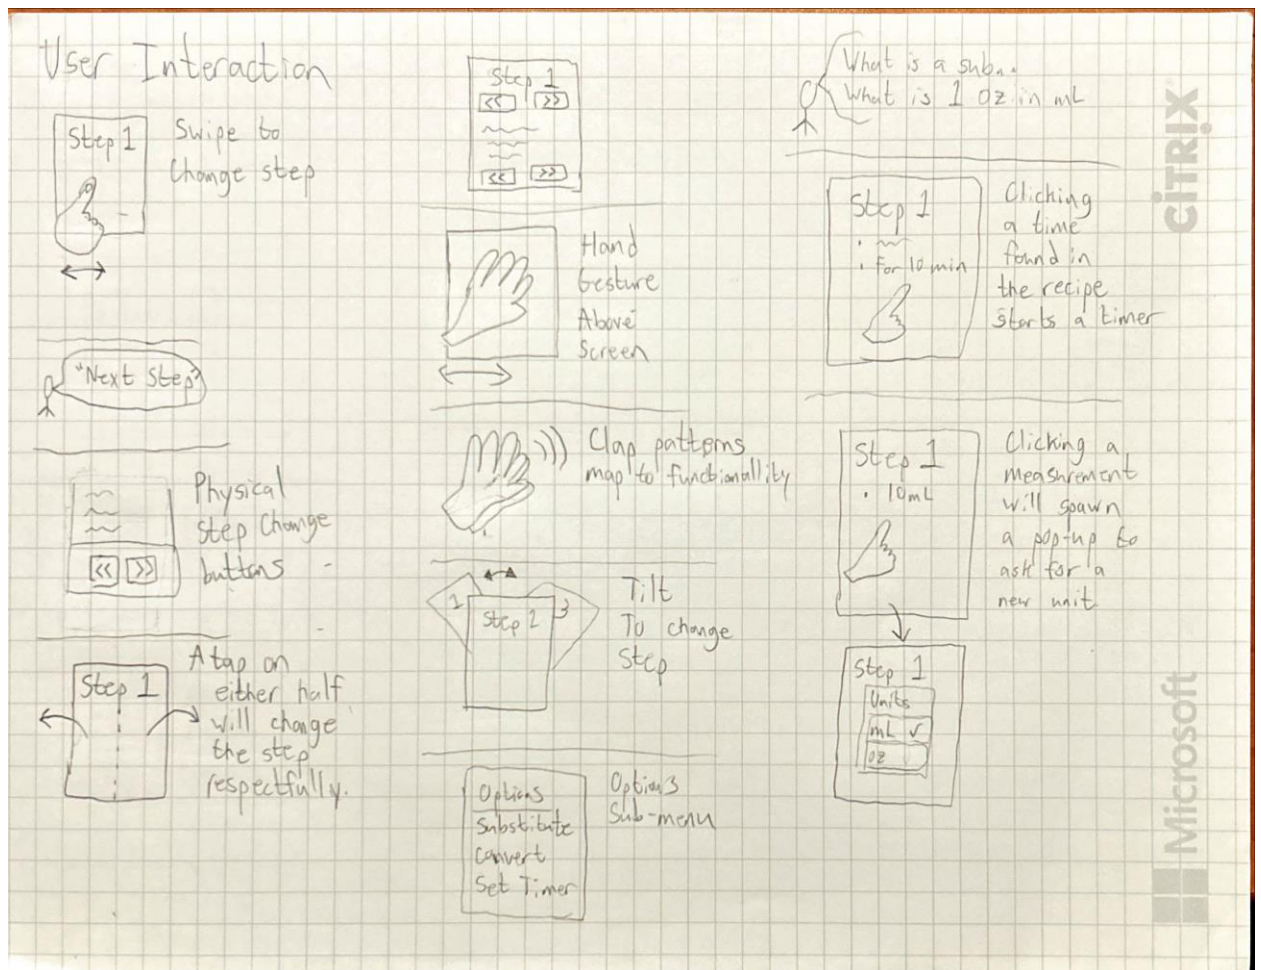 User Interaction
Step 1
Swipe to
Change step
"Next Step"
Physical
Step Change
buttons
<< >>
Step 1
A tap on
either half
will change
the step
respectfully.
Step 1
<< >>
<< >>
Hand
Gesture
Above
Screen
Clap patterns
map to functionallity
1
Step 2
3
Tilt
To change
Step
Options
Substitute
Convert
Set Timer
Options
Sub-menu
What is a sub...
What is 1 oz in mL
Step 1
• For 10 min
Clicking
a time
found in
the recipe
starts a timer
Step 1
• 10mL
Clicking a
measurement
will spawn
a pop-up to
ask for a
new unit
Step 1
Units
mL ✓
oz
CITRIX
Microsoft